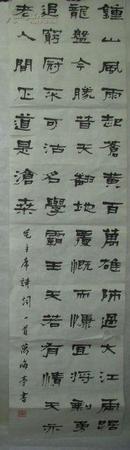 鍾山風雨起蒼黃百萬雄師過大江虎踞
龍盤今勝昔天翻地覆慨而慷宜將剩勇
追窮寇不可沽名學霸王天若有情天亦
老人間正道是滄桑
毛主席詩詞一首